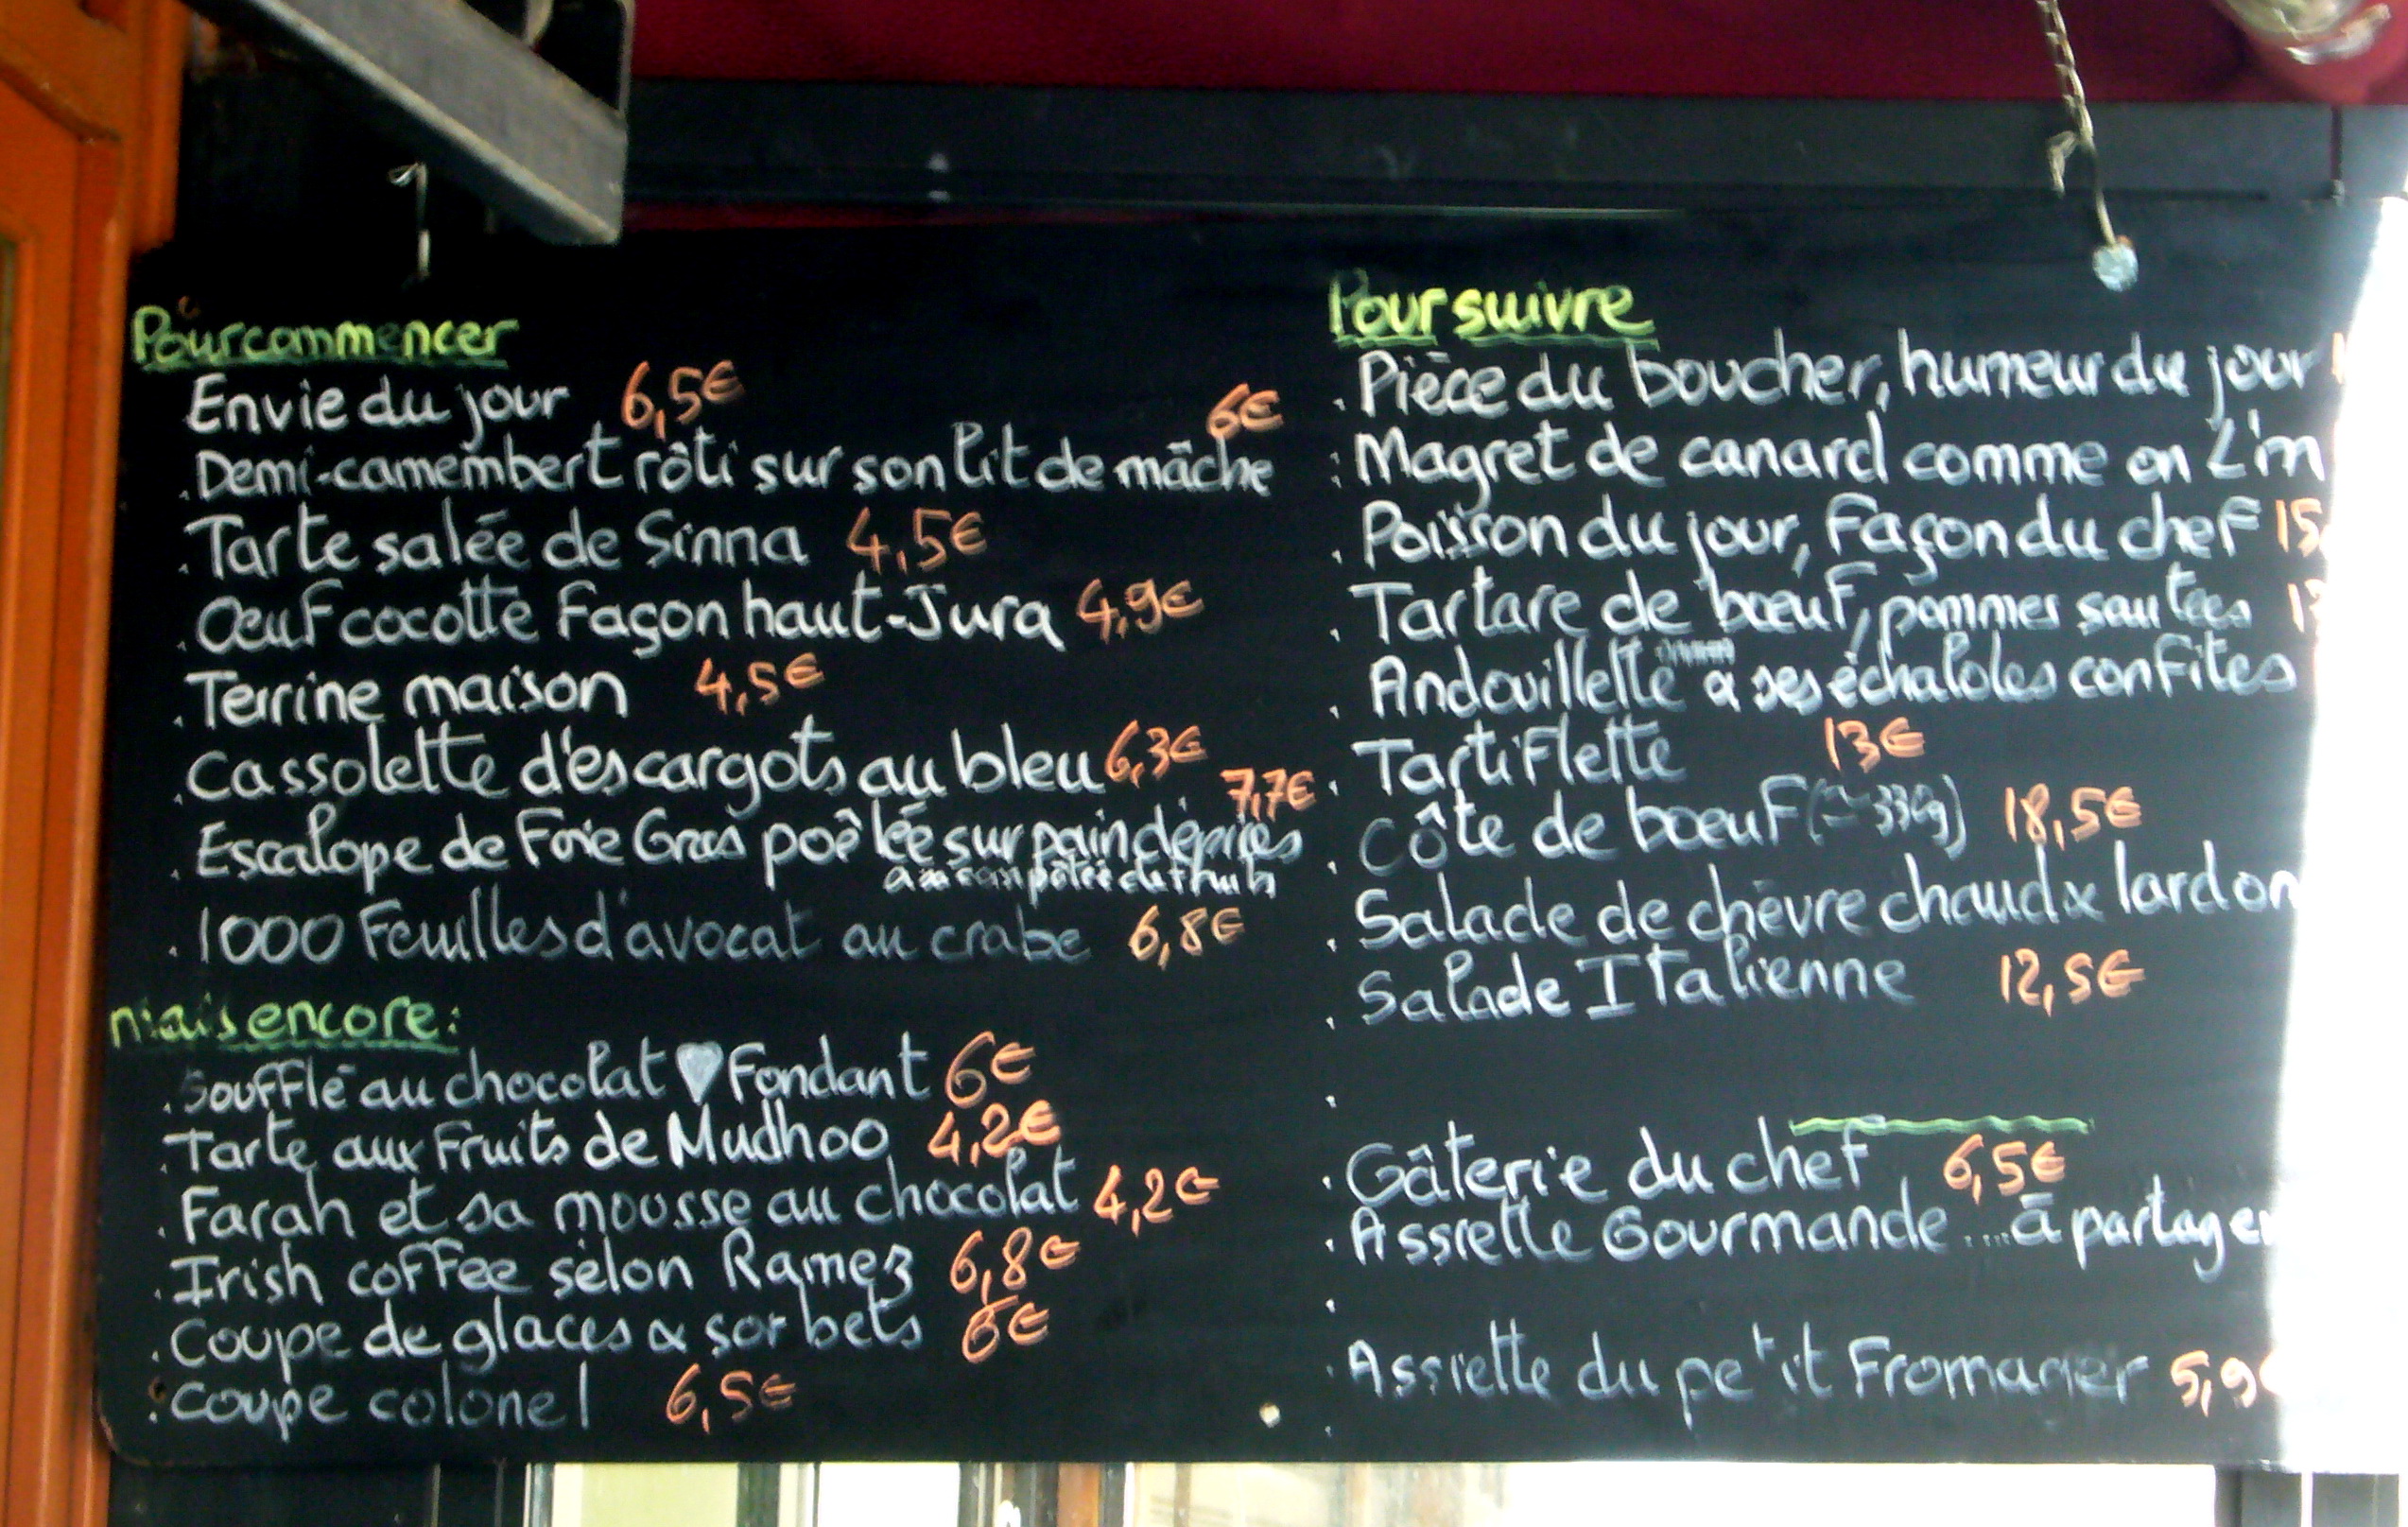 Pour commencer
Envie du jour 6,5€
. Demi-camembert rôti sur son lit de mâche 6€
. Tarte salée de Sinna 4,5€
. Œuf cocotte Façon haut-Jura 4,9€
. Terrine maison 4,5€
. Cassolette d'escargots au bleu 6,3€
. Escalope de Foie Gras poêlée sur pain d'épices 7,7€
. 1000 Feuilles d'avocat au crabe 6,8€
mais encore:
. Soufflé au chocolat ♥ Fondant 6€
. Tarte aux Fruits de Mudhoo 4,2€
. Farah et sa mousse au chocolat 4,2€
. Irish coffee selon Ramez 6,8€
. Coupe de glaces & sorbets 6€
. Coupe colonel 6,5€
Pour suivre
. Pièce du boucher, humeur du jour
. Magret de canard comme on L'm
. Poisson du jour, Façon du chef 15
. Tartare de bœuf, pommes sautées
. Andouillette à ses échalotes confites
. Tartiflette 13€
. Côte de bœuf 18,5€
. Salade de chèvre chaud & lardon
. Salade Italienne 12,5€
. Gâterie du chef 6,5€
. Assiette Gourmande ....à partager
. Assiette du pe'tit Fromager 5,9€